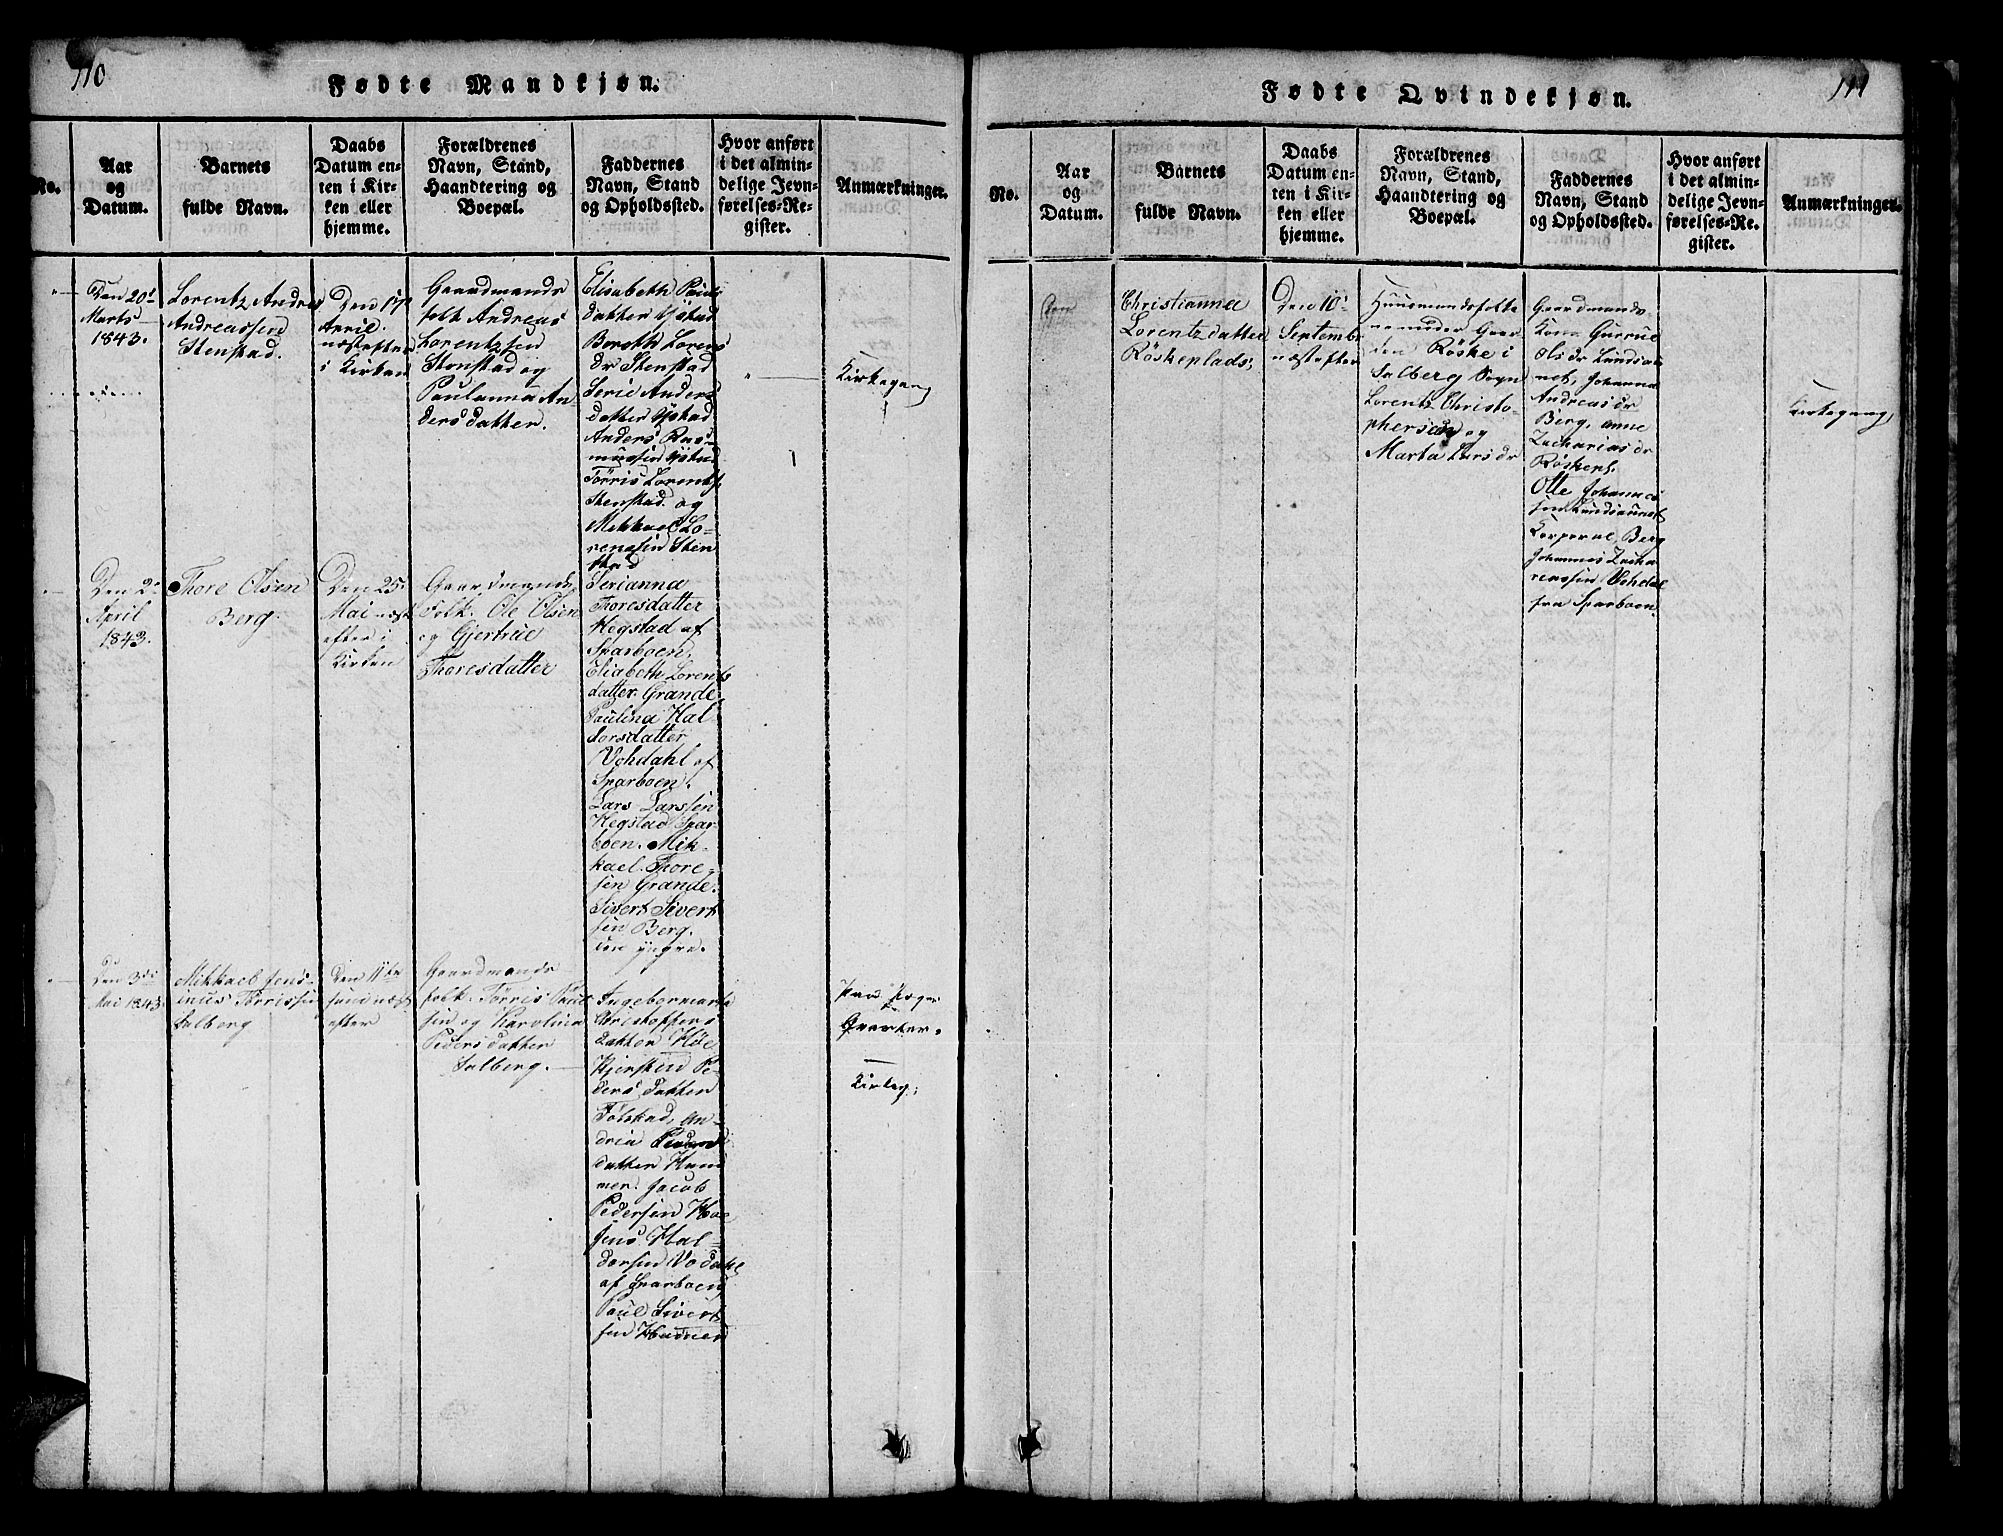 110
Fødte Mandkjøn.
No.
Aar
og
Datum.
Barnets
fulde Navn.
Daabs
Datum en-
ten i Kir-
ken eller
hjemme.
Forældrenes
Navn, Stand,
Haandtering og
Boepæl.
Faddernes
Navn, Stand
og Opholdssted.
Hvor anført
i det almin-
delige Jevn-
førelses-Re-
gister.
Anmærkninger.
Den 20de
Marts
1843.
Lorentz Andreas
Andreassen
Stenstad.
Den 17
April
næstefter
i Kirken
Gaardmands
folk Andreas
Lorentzsen
Stenstad og
Paulanna An
dersdatter.
Elisabeth Pauls
datter Ystad
Bereth Lorens
dr Stenstad
Serie Anders
datter Ystad
Anders Ras-
mussen Ystad
Tørris Lorents
Stenstad og
Mikkael Lo-
rentssen Sten
stad
Kirkegang
Den 2
April
1843.
Thore Olsen
Berg.
Den 25
Mai næst
efter i
Kirken
Gaardmands
Folk. Ole Olsen
og Gjertrue
Thoresdatter
Serianna
Thoresdatter
Hegstad af
Sparboen.
Eliabeth Lorents
datter Grande
Paulina Hal
dorsdatter
Vohdahl af
Sparboen.
Lars Larssen
Hegstad Spar
boen. Mik-
kael Thore-
sen Grande.
Sivert Sivert
sen Berg.
den yngre.
Den 3de
Mai 1843
Mikkael Jens-
inus Tørrissen
Salberg
Den 11te
Juni næst
efter
Gaardmands
folk. Tørris Paul
sen og Karolina
Peders datter
Salberg.
Ingebormarta
Christoffers
datter Høe
Kjersten Pe-
ders datter
Tølstad, An-
dria Peders
datter Ham
mer. Jacob
Pedersen Hoe
Jens Hal-
dorsen Vodahl
af Sparboen
Paul Sivert
sen
Qvarter.
Kirkeg:
111
Fødte Qvindekjøn.
No.
Aar
og
Datum.
Barnets
fulde Navn.
Daabs
Datum en-
ten i Kir-
ken eller
hjemme.
Forældrenes
Navn, Stand,
Haandtering og
Boepæl.
Faddernes
Navn, Stand
og Opholdssted.
Hvor anført
i det almin-
delige Jevn-
førelses-Re-
gister.
Anmærkninger.
Den
Christianna
Lorentzdatter
Röskeplads;
Den 10
Septembr
næstefter
Huusmandsfolk
under Gaar
den Röske i
Salberg Sogn
Lorentz Christo-
phersen og
Marta Larsdr
Gaardmands
Kone Gurrue
Olsdr Lundsau
net, Johanna
Andreasdr
Berg, Anne
Zachariasdr
Röskepl.
Otte Johannes
sen Lundsaunet
Korporal Berg
Johannes Zacha
reassen Vohdal
fra Sparboen.
Kirkegang